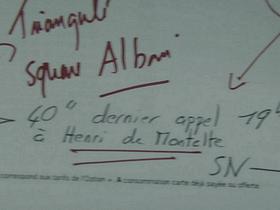 Trianguli
square Albani
40" dernier appel 19h
à Henri de Montelte
SN
correspond aux tarifs de l'Option
consommation carte déjà payée ou offerte